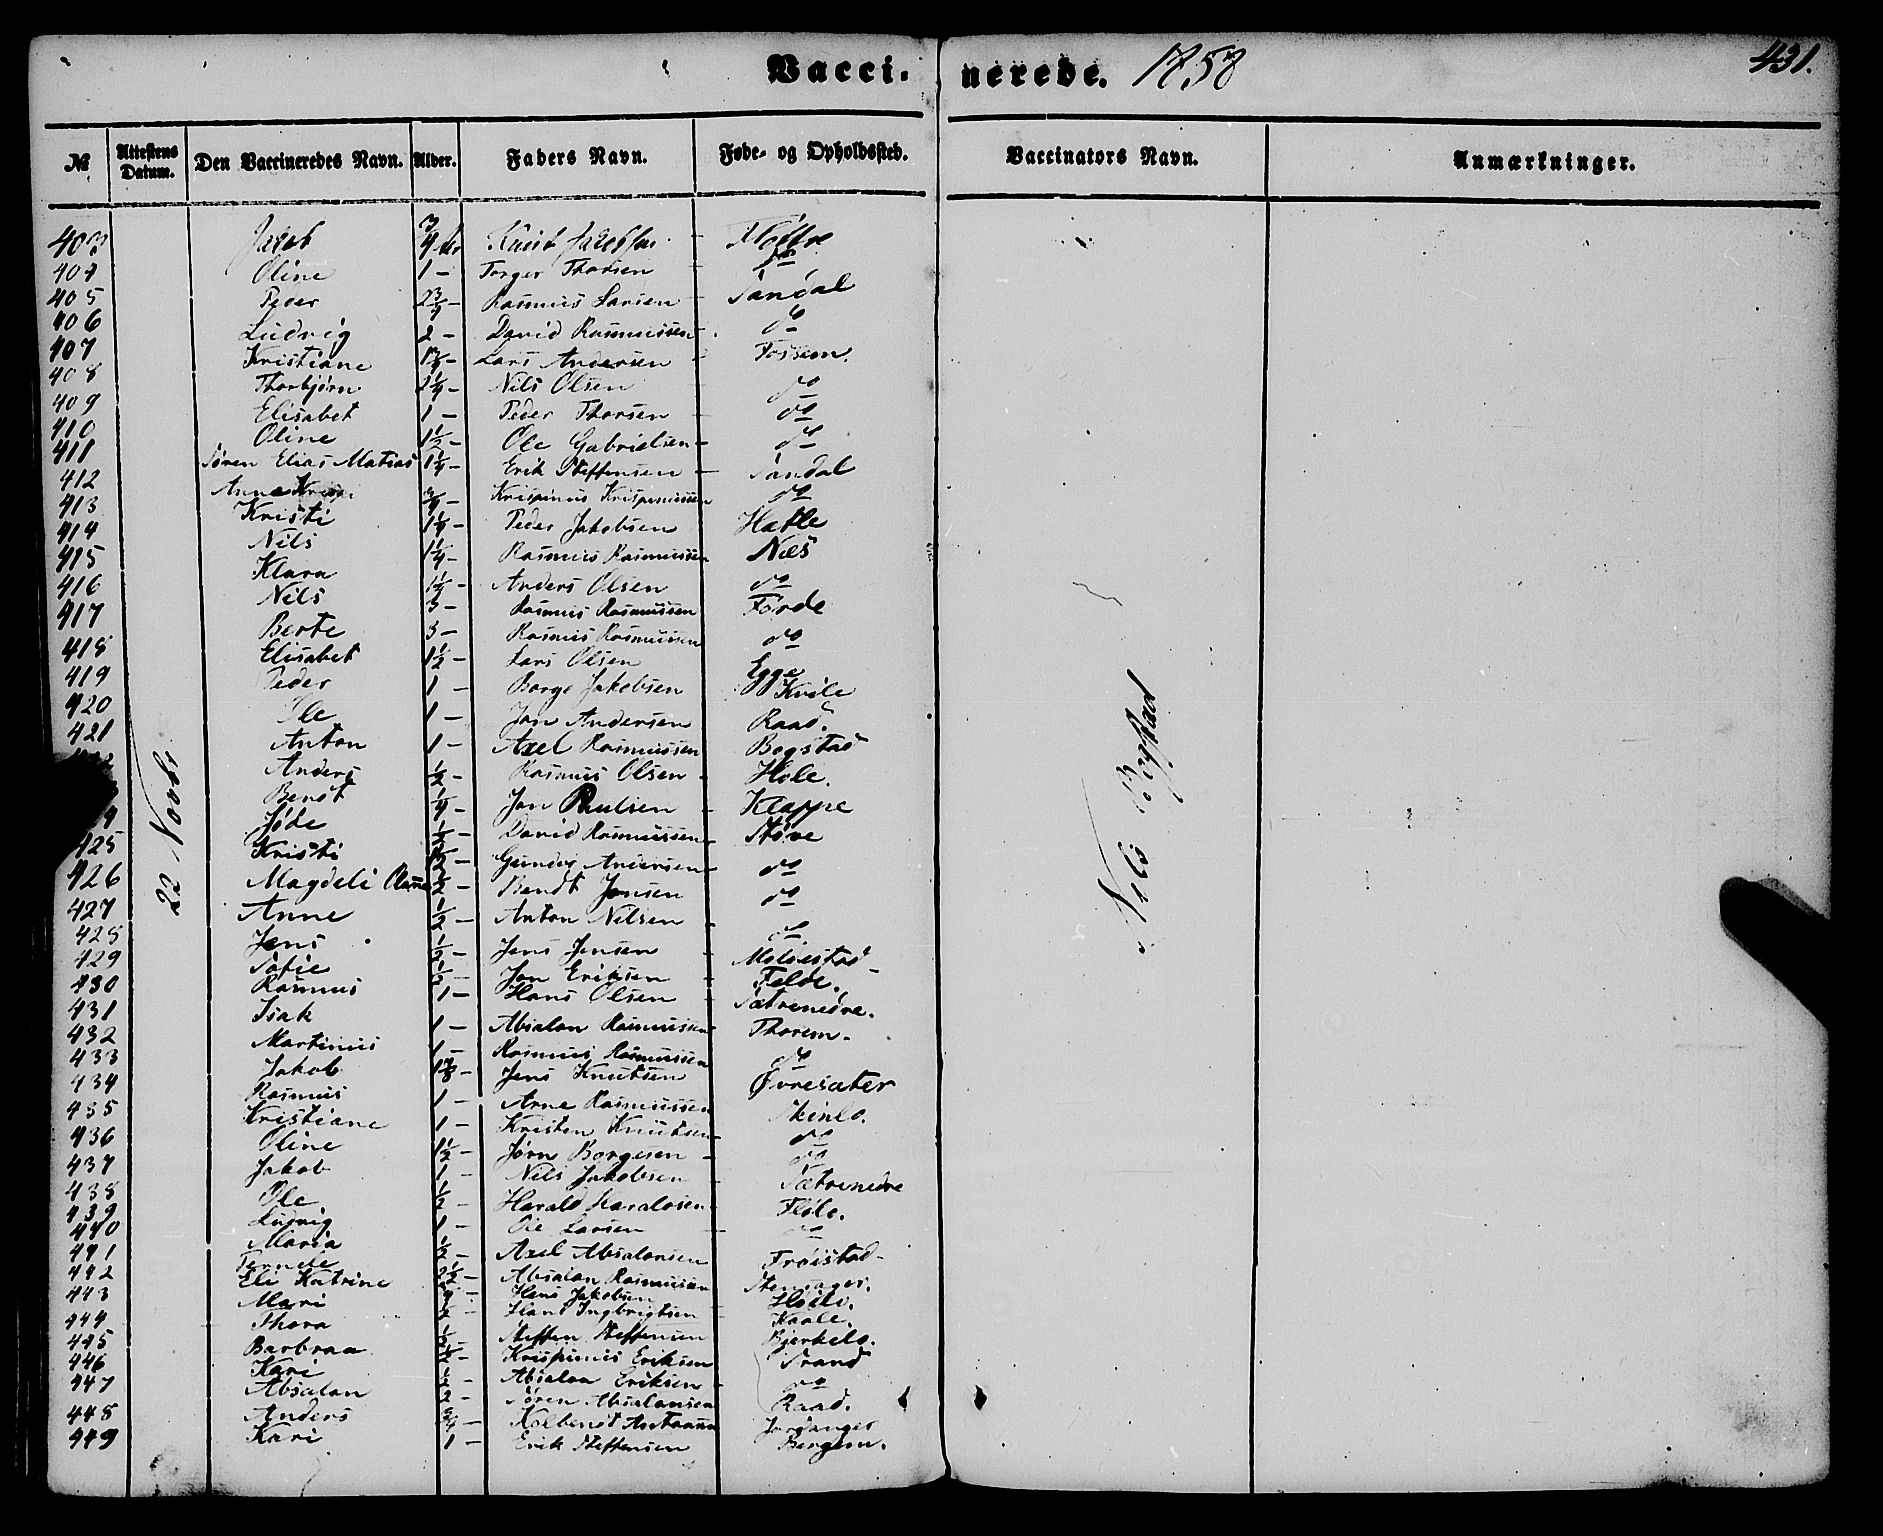 Vaccinerede. 1858
431.
№ Attestens Datum. Den Vaccineredes Navn. Alder. Faders Navn. Føde- og Opholdssted. Vaccinators Navn. Anmærkninger.
22 Novbr
Nils Bogstad
403 Jakob 3/4 Aar Knut Jakobsen
404 Oline 1 - Torger Thorsen - do
405 Peder 2 3/4 - Rasmus Larsen - Sandal
406 Ludvig 2 - David Rasmussen - do
407 Kristiane Lars Andersen - Fossem.
408 Thorbjørn 2 1/4 - Nils Olsen do
409 Elisabet 1 - Peder Thorsen - do
410 Oline 1 1/2 - Ole Gabrielsen - do
411 Søren Elias Matias 1 1/4 - Erik Steffensen - Sandal
412 Anne 3/4 - Krispinus Krispinussen do
413 Kristi 1 1/4 - Peder Jakobsen Hatle
414 Nils 1 1/4 - Rasmus Rasmussen Næs
415 Klara 1 1/4 - Anders Olsen do
416 Nils 3 - Rasmus Rasmussen Førde
417 Berte 3 - Rasmus Rasmussen do
418 Elisabet 1 1/2 - Lars Olsen Egge
419 Peder 1 - Børge Jakobsen Kvile
420 Ole 1 - Jon Andersen Raad.
421 Anton 1 - Axel Rasmussen Bogstad
Anders 1/2 - Rasmus Olsen - Hole.
Bendt 1/4 - Jon Paulsen - Klappe
Jøde 1/2 - David Rasmussen - Støve
425 Kristi Gundvig Andersen - do
426 Magdeli 1/2 - Bendt Jonsen do
427 Anne 1/2 - Anton Nilsen - do
428 Jens 1/2 - Jens Jensen - Moldestad
429 Sofie 1/2 - Jon Eriksen - Felde.
430 Rasmus 1 - Hans Olsen - Sætrenedre.
431 Isak 1 - Absalon Rasmussen Thorem.
432 Martinus 1 - Rasmus Rasmussen do
433 Jakob Jens Knutsen Øvresæter
434 Rasmus 1 - Arne Rasmussen Skinlo.
435 Kristiane 1 - Kristen Knutsen - do
436 Oline 1 1/2 - Jørn Børgesen - do
437 Jakob 1 - Nils Jakobsen Sætrenedre
438 Ole 1/2 - Harald Haraldsen Fløde.
439 Ludvig 1 - Ole Larsen - do
440 Maria 1/2 - Axel Absalonsen Frøistad -
441 Pernele 2 1/2 - Absalon Rasmussen
442 Eli Katrine Hans Jakobsen
443 Mari Hans Ingbrigtsen Kaale.
444 Thora 1/2 - Steffen Steffensen Bjerkelo.
445 Barbraa Krispinus Eriksen Strand
446 Kari Absalon Eriksen - do
447 Absalon 2 - Søren Absalonsen Raad.
448 Anders 3/4 - Kolbendt Antonsen Jordanger
449 Kari 1 - Erik Steffensen Bergem.